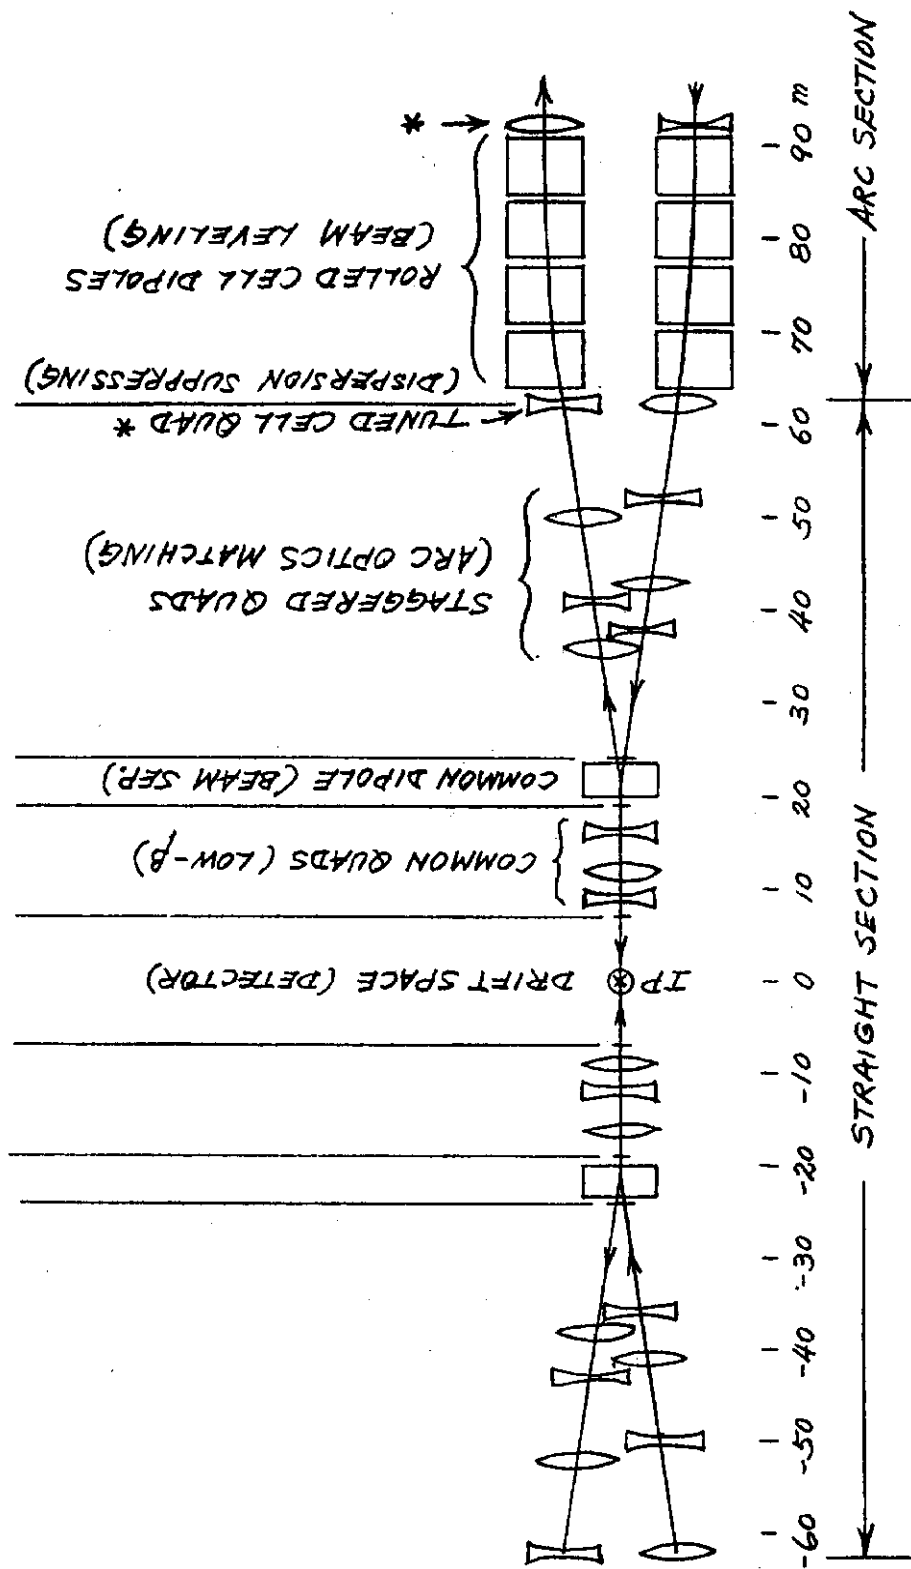 *
ROLLED CELL DIPOLES
(BEAM LEVELING)
TUNED CELL QUAD *
(DISPERSION SUPPRESSING)
STAGGERED QUADS
(ARC OPTICS MATCHING)
COMMON DIPOLE (BEAM SEP.)
COMMON QUADS (LOW-β)
IP DRIFT SPACE (DETECTOR)
-60 -50 -40 -30 -20 -10 0 10 20 30 40 50 60 70 80 90 m
STRAIGHT SECTION ARC SECTION